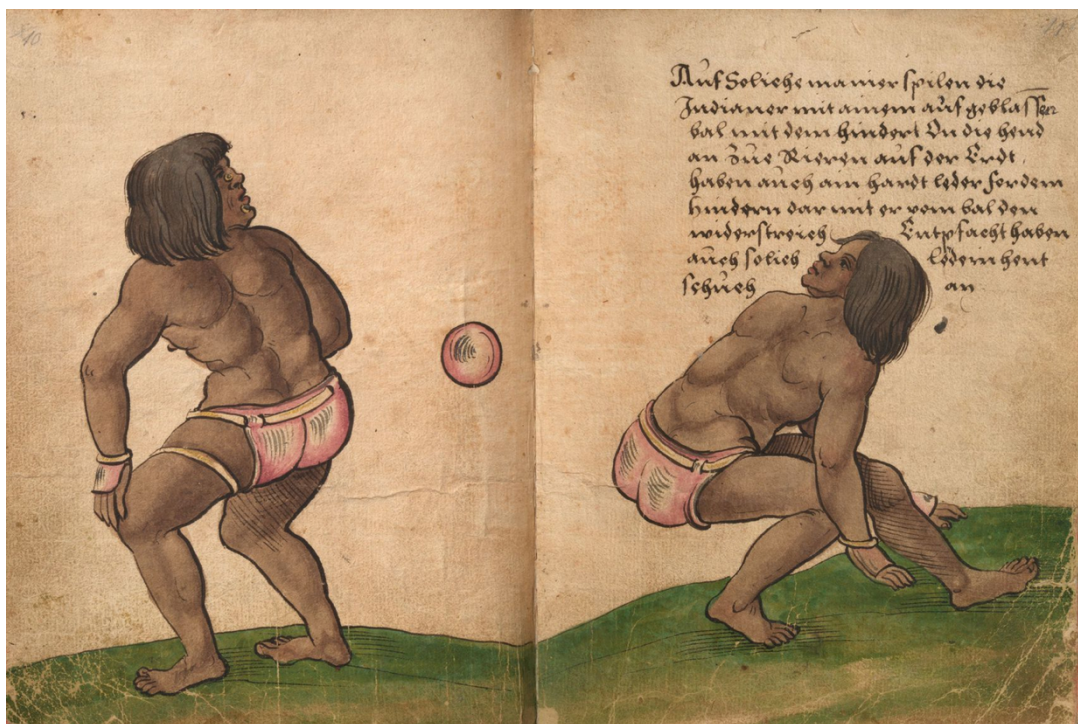 10
Auf Soliche manier spilen die
Indianer mit ainem auf geblassen
bal mit dem hindert On die hend
an Zue Rieren auf der Erdt
haben auch ain hardt leder fordem
hindern dar mit er vom bal den
widerstreich Entpfacht haben
auch solich ledern hent
schuch an